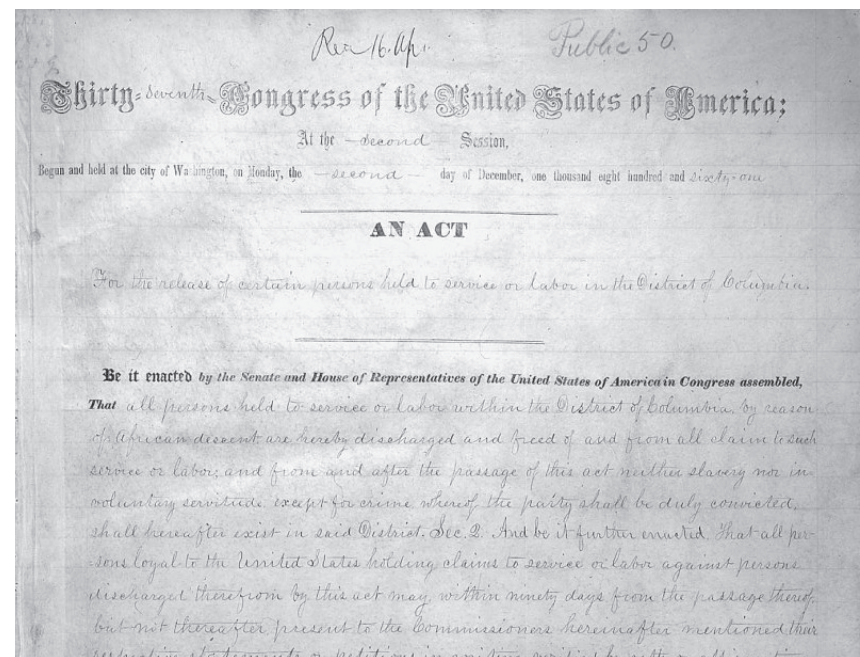 Rec 16. Apr.
Public 50.
Thirty-seventh-Congress of the United States of America;
At the -second Session,
Begun and held at the city of Washington, on Monday, the -second- day of December, one thousand eight hundred and sixty-one
AN ACT
For the release of certain persons held to service or labor in the District of Columbia.
Be it enacted by the Senate and House of Representatives of the United States of America in Congress assembled,
That all persons held to service or labor within the District of Columbia by reason
of African descent are hereby discharged and freed of and from all claim to such
service or labor; and from and after the passage of this act neither slavery nor in-
voluntary servitude, except for crime whereof the party shall be duly convicted,
shall hereafter exist in said District. Sec. 2. And be it further enacted, That all per-
sons loyal to the United States holding claims to service or labor against persons
discharged therefrom by this act may, within ninety days from the passage thereof,
but not thereafter, present to the Commissioners hereinafter mentioned their
respective statements or petitions in writing